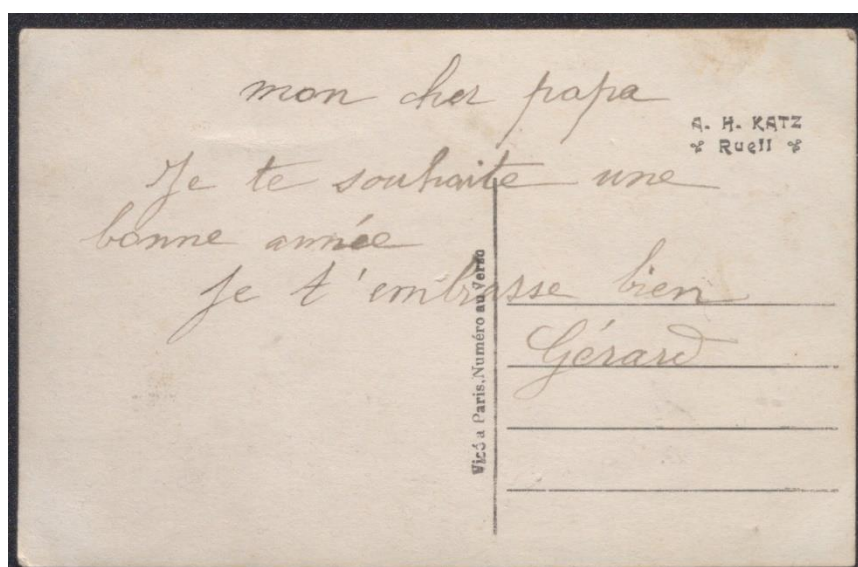 mon cher papa
A. H. KATZ
Rueil
Je te souhaite une
bonne année
Je t'embrasse bien
Gérard
Visé a Paris. Numéro au verso